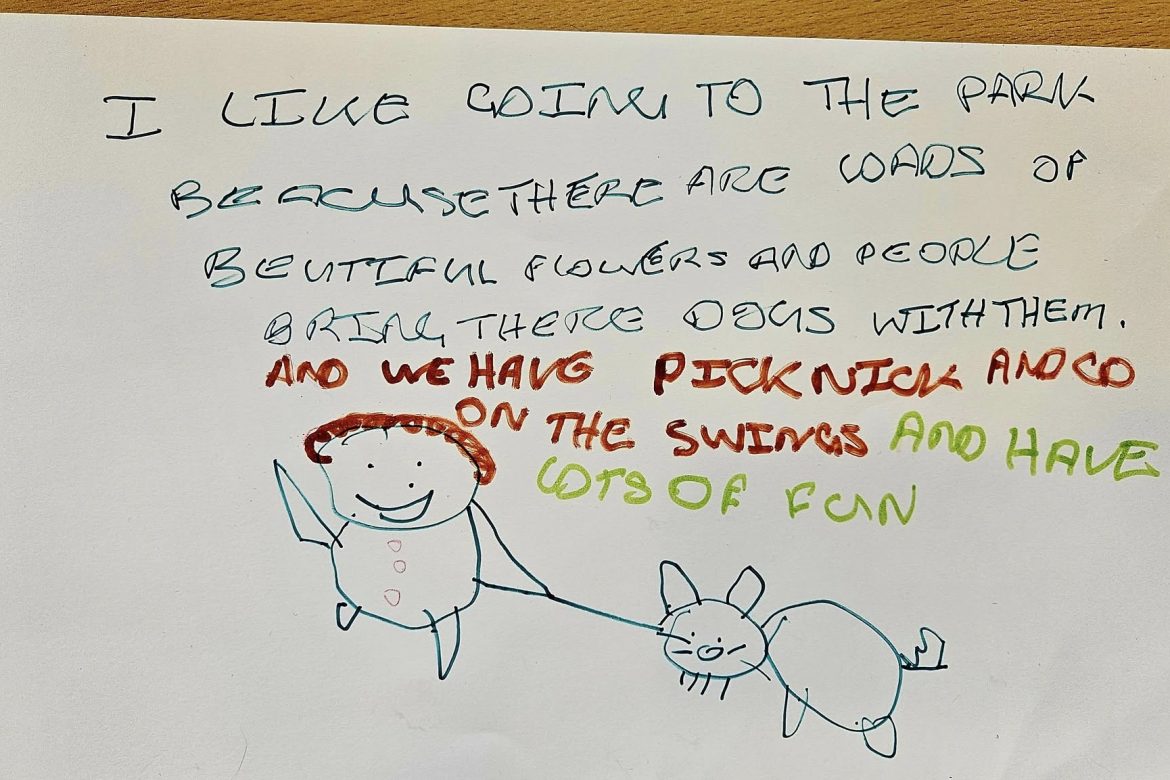 I LIKE GOING TO THE PARK
BEACUSE THERE ARE LOADS OF
BEUTIFUL FLOWERS AND PEOPLE
BRING THERE DOGS WITH THEM.
AND WE HAVE PICKNICK AND GO
ON THE SWINGS AND HAVE
LOTS OF FUN